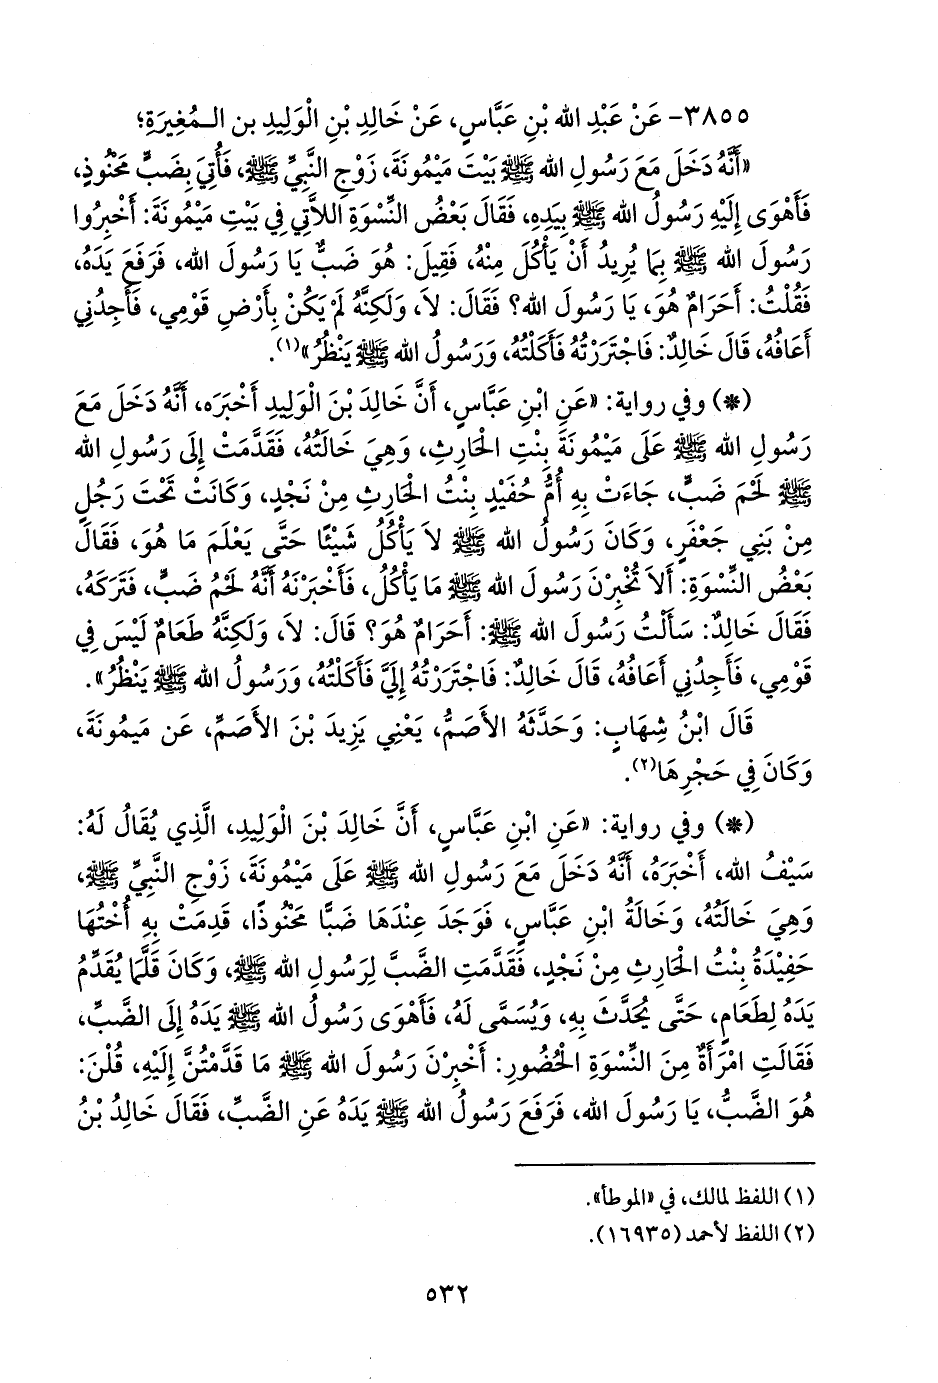 ٣٨٥٥- عَنْ عَبْدِ الله بْنِ عَبَّاسٍ، عَنْ خَالِدِ بْنِ الْوَلِيدِ بن الـمُغِيرَةِ؛
«أَنَّهُ دَخَلَ مَعَ رَسُولِ الله ﷺ بَيْتَ مَيْمُونَةَ، زَوْجِ النَّبِيِّ ﷺ، فَأُتِيَ بِضَبٍّ مَحْنُوذٍ،
فَأَهْوَى إِلَيْهِ رَسُولُ الله ﷺ بِيَدِهِ، فَقَالَ بَعْضُ النِّسْوَةِ اللاَّتِي فِي بَيْتِ مَيْمُونَةَ: أَخْبِرُوا
رَسُولَ الله ﷺ بِمَا يُرِيدُ أَنْ يَأْكُلَ مِنْهُ، فَقِيلَ: هُوَ ضَبٌّ يَا رَسُولَ الله، فَرَفَعَ يَدَهُ،
فَقُلْتُ: أَحَرَامٌ هُوَ، يَا رَسُولَ الله؟ فَقَالَ: لاَ، وَلَكِنَّهُ لَمْ يَكُنْ بِأَرْضِ قَوْمِي، فَأَجِدُنِي
أَعَافُهُ، قَالَ خَالِدٌ: فَاجْتَرَرْتُهُ فَأَكَلْتُهُ، وَرَسُولُ الله ﷺ يَنْظُرُ»(١).
(*) وفي رواية: «عَنِ ابْنِ عَبَّاسٍ، أَنَّ خَالِدَ بْنَ الْوَلِيدِ أَخْبَرَه، أَنَّهُ دَخَلَ مَعَ
رَسُولِ الله ﷺ عَلَى مَيْمُونَةَ بِنْتِ الْحَارِثِ، وَهِيَ خَالَتُهُ، فَقَدَّمَتْ إِلَى رَسُولِ الله
ﷺ لَحْمَ ضَبٍّ، جَاءَتْ بِهِ أُمُّ حُفَيْدٍ بِنْتُ الْحَارِثِ مِنْ نَجْدٍ، وَكَانَتْ تَحْتَ رَجُلٍ
مِنْ بَنِي جَعْفَرٍ، وَكَانَ رَسُولُ الله ﷺ لاَ يَأْكُلُ شَيْئًا حَتَّى يَعْلَمَ مَا هُوَ، فَقَالَ
بَعْضُ النِّسْوَةِ: أَلاَ تُخْبِرْنَ رَسُولَ الله ﷺ مَا يَأْكُلُ، فَأَخْبَرْنَهُ أَنَّهُ لَحْمُ ضَبٍّ، فَتَرَكَهُ،
فَقَالَ خَالِدٌ: سَأَلْتُ رَسُولَ الله ﷺ: أَحَرَامٌ هُوَ؟ قَالَ: لاَ، وَلَكِنَّهُ طَعَامٌ لَيْسَ فِي
قَوْمِي، فَأَجِدُنِي أَعَافُهُ، قَالَ خَالِدٌ: فَاجْتَرَرْتُهُ إِلَيَّ فَأَكَلْتُهُ، وَرَسُولُ الله ﷺ يَنْظُرُ».
قَالَ ابْنُ شِهَابٍ: وَحَدَّثَهُ الأَصَمُّ، يَعْنِي يَزِيدَ بْنَ الأَصَمِّ، عَن مَيمُونَةَ،
وَكَانَ فِي حَجْرِهَا(٢).
(*) وفي رواية: «عَنِ ابْنِ عَبَّاسٍ، أَنَّ خَالِدَ بْنَ الْوَلِيدِ، الَّذِي يُقَالُ لَهُ:
سَيْفُ الله، أَخْبَرَهُ، أَنَّهُ دَخَلَ مَعَ رَسُولِ الله ﷺ عَلَى مَيْمُونَةَ، زَوْجِ النَّبِيِّ ﷺ،
وَهِيَ خَالَتُهُ، وَخَالَةُ ابْنِ عَبَّاسٍ، فَوَجَدَ عِنْدَهَا ضَبًّا مَحْنُوذًا، قَدِمَتْ بِهِ أُخْتُهَا
حَفِيْدَةُ بِنْتُ الْحَارِثِ مِنْ نَجْدٍ، فَقَدَّمَتِ الضَّبَّ لِرَسُولِ الله ﷺ، وَكَانَ قَلَّمَا يُقَدِّمُ
يَدَهُ لِطَعَامٍ، حَتَّى يُحَدَّثَ بِهِ، وَيُسَمَّى لَهُ، فَأَهْوَى رَسُولُ الله ﷺ يَدَهُ إِلَى الضَّبِّ،
فَقَالَتِ امْرَأَةٌ مِنَ النِّسْوَةِ الْحُضُورِ: أَخْبِرْنَ رَسُولَ الله ﷺ مَا قَدَّمْتُنَّ إِلَيْهِ، قُلْنَ:
هُوَ الضَّبُّ، يَا رَسُولَ الله، فَرَفَعَ رَسُولُ الله ﷺ يَدَهُ عَنِ الضَّبِّ، فَقَالَ خَالِدُ بْنُ
(١) اللفظ لمالك، في «الموطأ».
(٢) اللفظ لأحمد (١٦٩٣٥).
٥٣٢